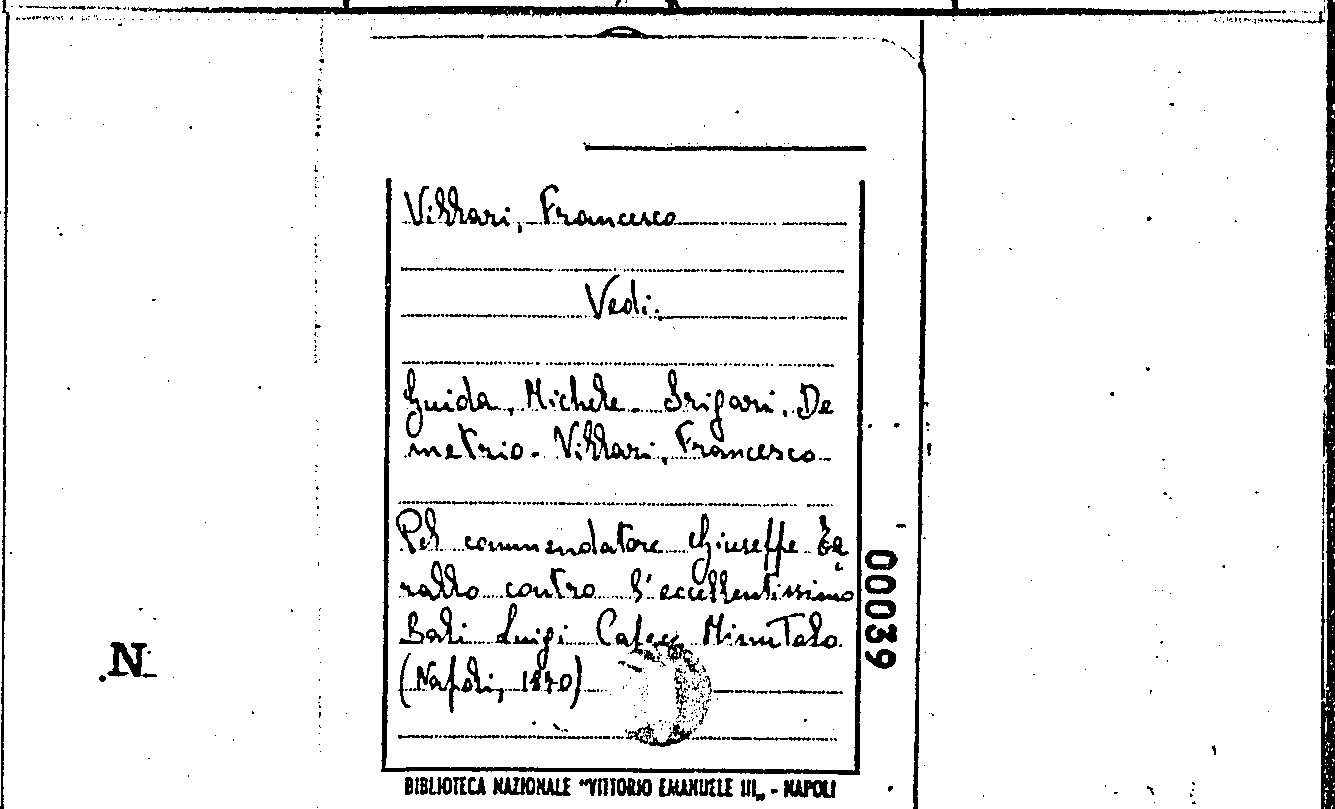 Villari, Francesco
Vedi:
Guida, Michele - Grifari, De
metrio - Villari, Francesco
Pel commendatore Giuseppe
rallo contro l'eccellentissimo
Balì Luigi Capece Minutolo
(Napoli, 1870)
00039
.N.
BIBLIOTECA NAZIONALE "VITTORIO EMANUELE III„ - NAPOLI